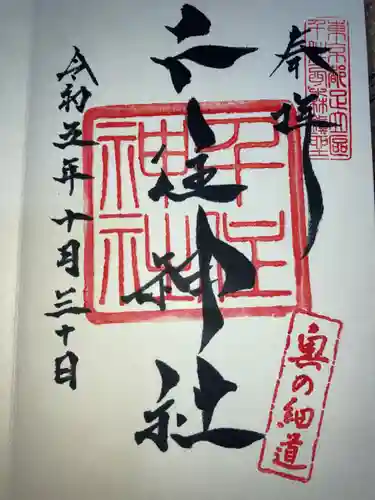 東京都足立区
千住宮元町鎮座
奉拝
千住神社
千住
神社
奥の細道
令和五年十月三十日